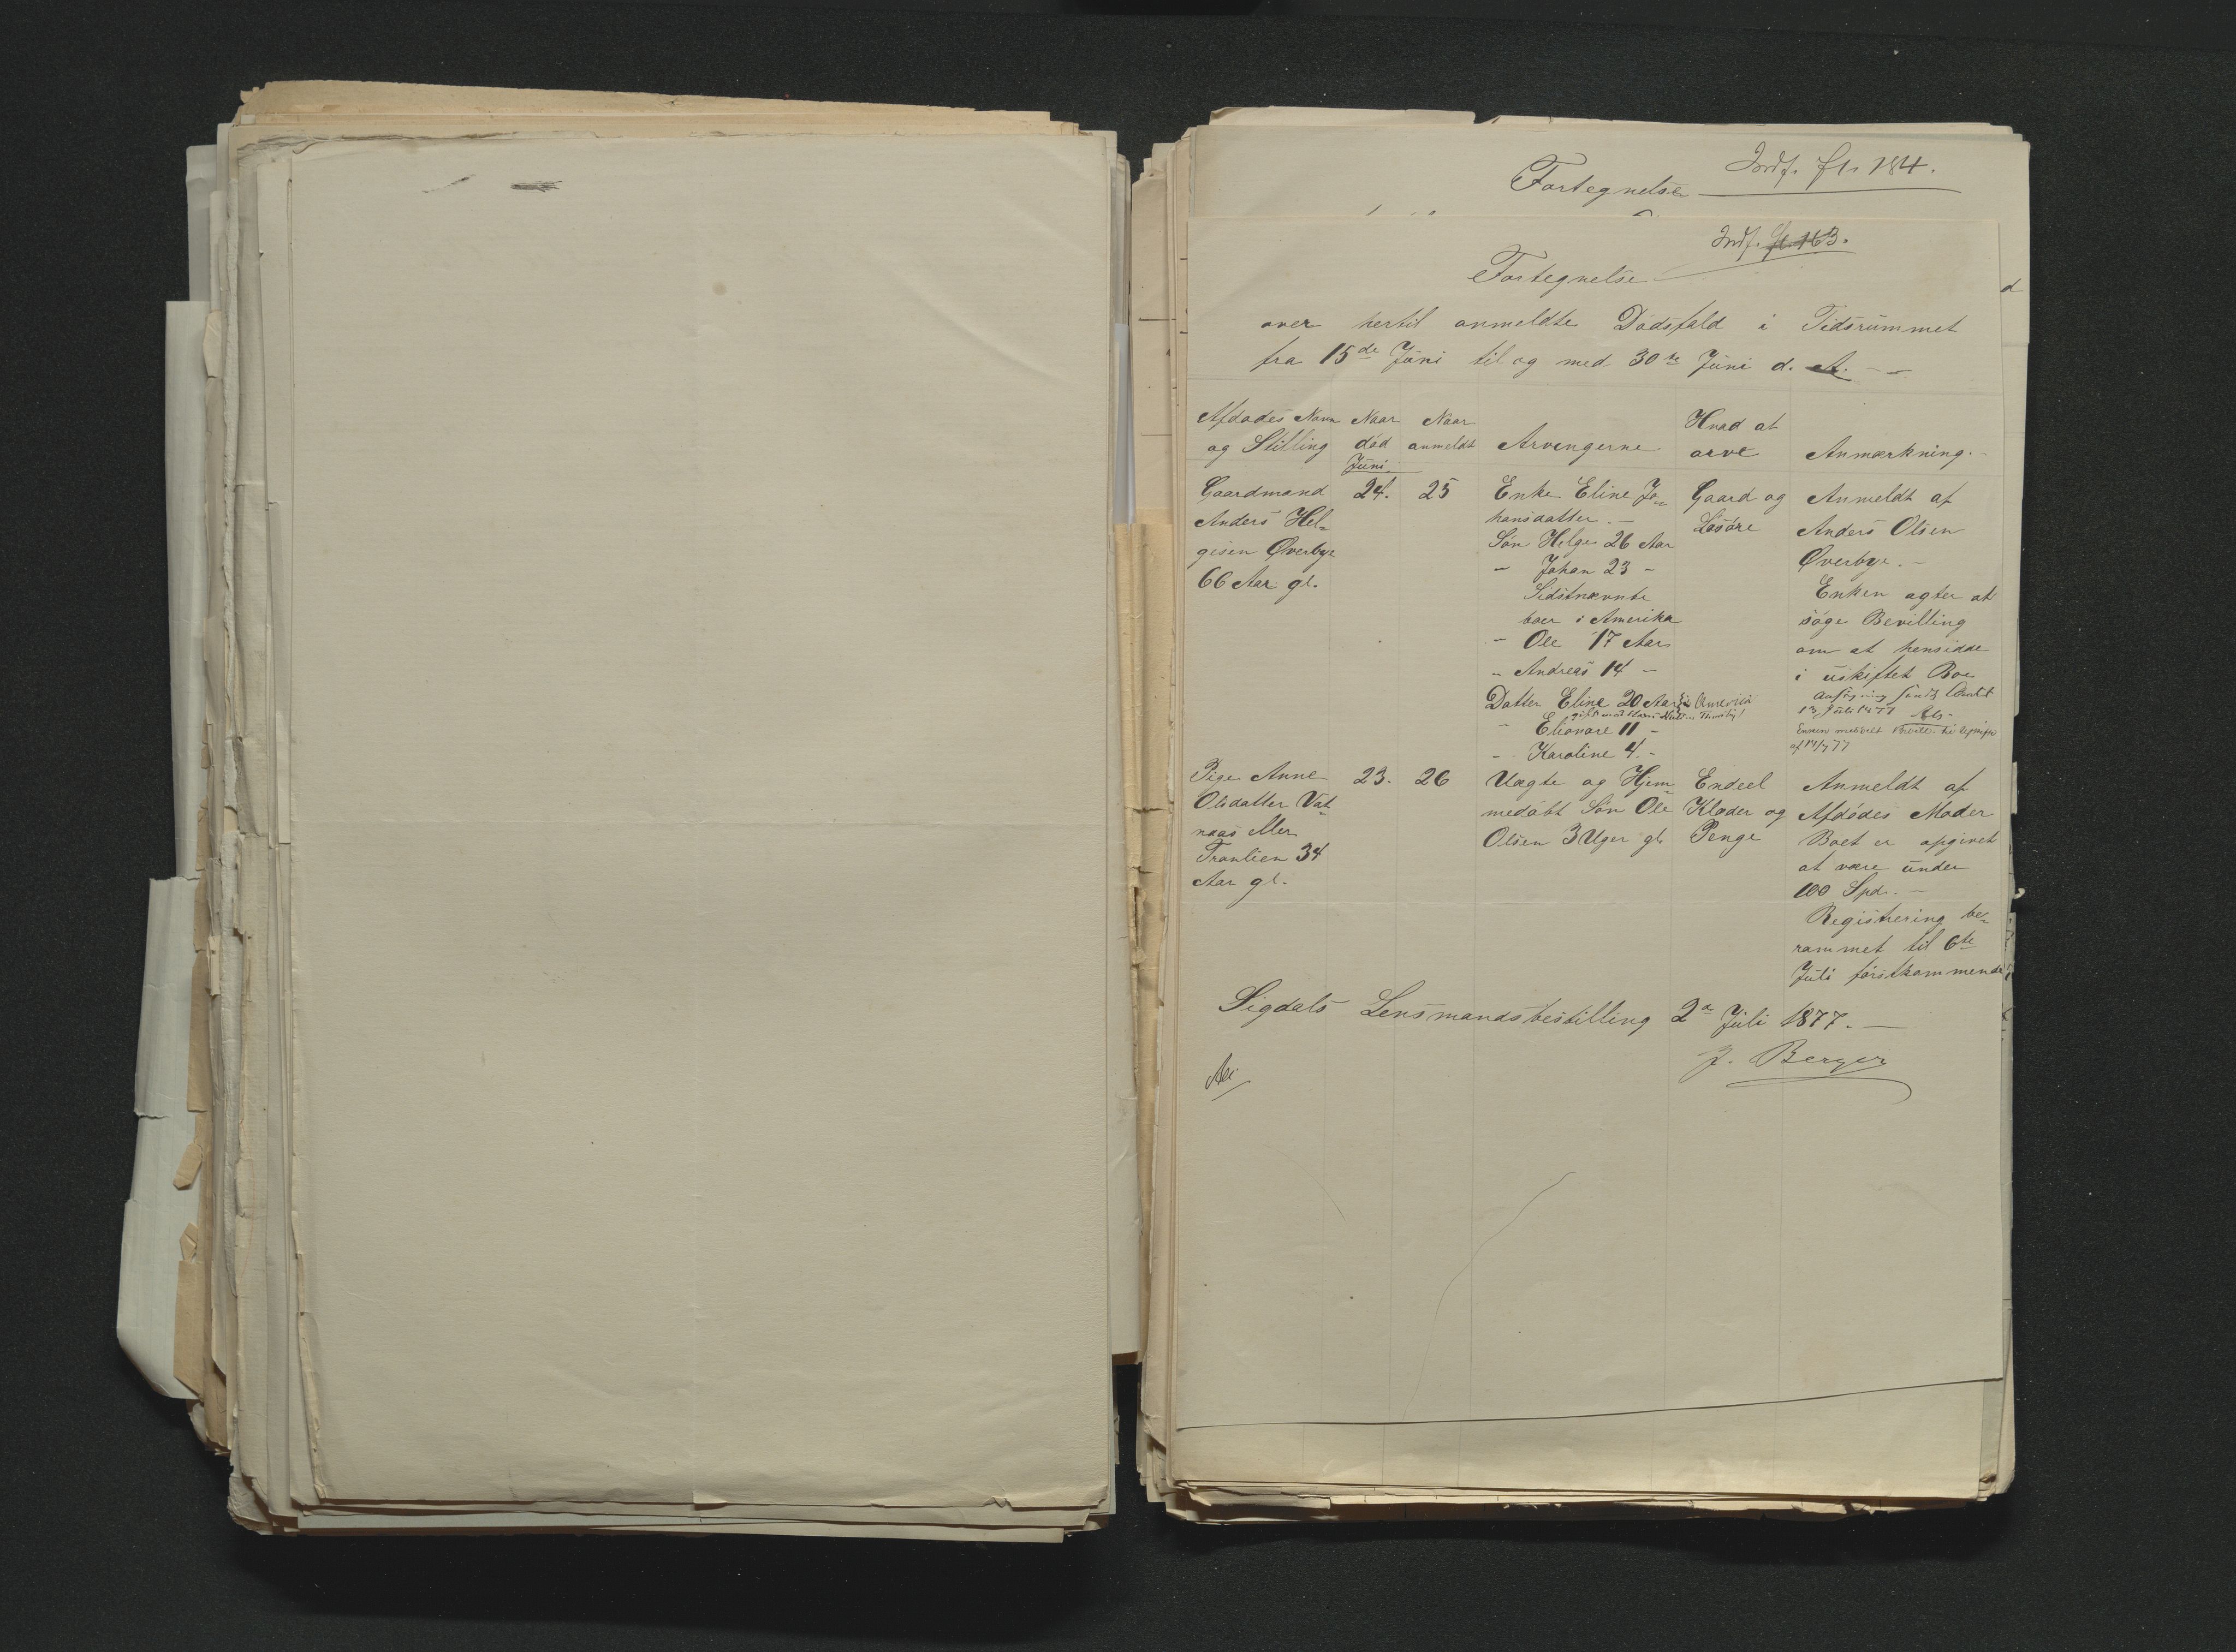 Indf. fl. 184.
Fortegnelse
Indf. fl. 163.
Fortegnelse
over hertil anmeldte Dødsfald i Tidsrummet
fra 15de Juni til og med 30te Juni d. A. --
Afdødes Navn
og Stilling
Naar
død
Naar
anmeldt
Arvingerne
Hvad at
arve
Anmærkning.
Juni
Gaardmand
Anders Hel-
gesen Øverbye
66 Aar gl.
24.
25
Enke Eline Jo-
hansdatter. -
Søn Helge 26 Aar
- Johan 23 -
Sidstnævnte
boer i Amerika
- Ole 17 Aar
- Andreas 14 -
Datter Eline 20 Aar i Amerika
gift med Hans
- Elionore 11 -
- Karoline 4 -
Gaard og
Løsøre
Anmeldt af
Anders Olsen
Øverbye. -
Enken agter at
søge Bevilling
om at hensidde
i uskiftet Boe
Ansøgning sendt Amtet
13 Juli 1877
Enken meddelt
af
Pige Anne
Olsdatter Vat-
naas eller
Tranlien 34
Aar gl.
23.
26
Uægte og Hjem-
medøbt Søn Ole
Olsen 3 Uger gl.
Endeel
Klæder og
Penge
Anmeldt af
Afdødes Moder
Boet er opgivet
at være under
100 Spd. -
Registrering be-
rammet til 6te
Juli førstkommende
Sigdals Lensmandsbestilling 2n Juli 1877. -
J. Berger